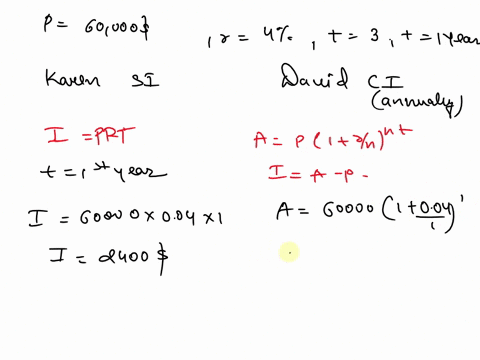 P = 60,000$ , r = 4% , t = 3 , t = 1 year
Karen SI
David CI
(annualy)
I = PRT
t = 1st year
I = 60000 x 0.04 x 1
I = 2400 $
A = P (1 + r/n)^nt
I = A - P -
A = 60000 (1 + 0.04/1)^1